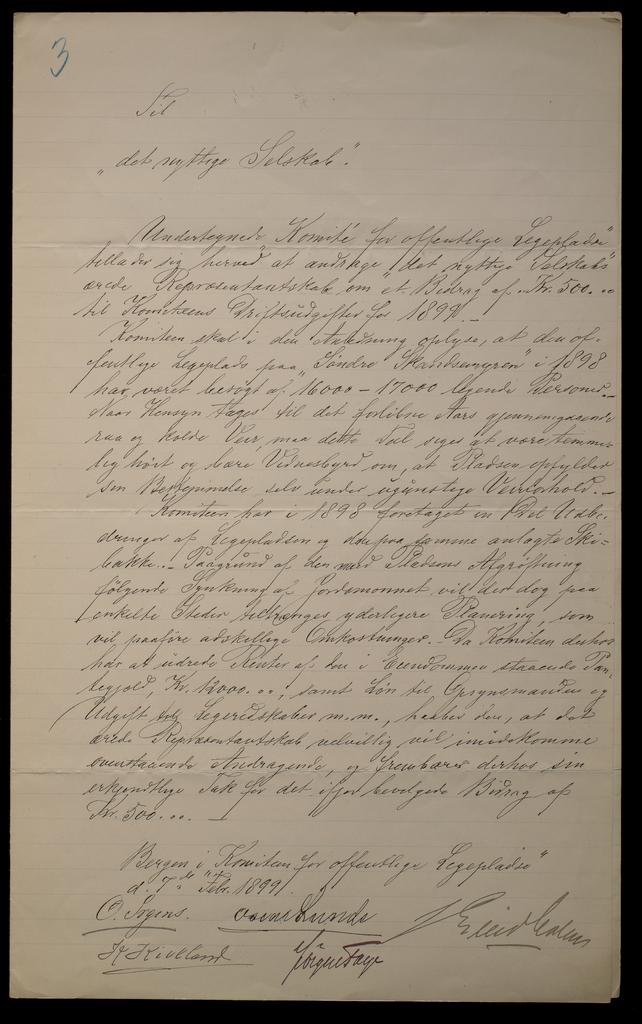 3
Til
"det nyttige Selskab".
Undertegnede Komité for offentlige Legepladse
tillader sig herved at andrage "det nyttige Selskabs"
ærede Repræsentantskab om et Bidrag af Kr. 500.00
til Komiteens Driftsudgifter for 1899.
Komiteen skal i den Anledning oplyse, at den of-
fentlige Legeplads paa "Söndre Skandsemyren" i 1898
har været besögt af 16000 – 17000 legende Personer.–
Naar Hensyn tages til det forløbne Aars gjennemgaaende
raa og kolde Veir, maa dette Tal siges at være temme-
lig höit og bære Vidnesbyrd om, at Pladsen opfylder
sin Bestemmelse selv under ugunstige Veirforhold.–
Komiteen har i 1898 foretaget en Del Udbe-
dringer af Legepladsen og den paa samme anlagte Ski-
bakke.– Paagrund af den med Pladsens Afgröftning
fölgende Synkning af Jordsmonnet vil der dog paa
enkelte Steder tiltrænges yderligere Planering, som
vil paaføre adskillige Omkostninger. Da Komiteen derhos
har at udrede Renter af den i Eiendommen staaende Pan-
tegjæld, Kr. 12000.00, samt Lön til Opsynsmanden og
Udgift til Legeredskaber m.m., haaber den, at det
ærede Repræsentantskab velvillig vil imödekomme
ovenstaaende Andragende, og frembærer derhos sin
erkjendtlige Tak for det ifjor bevilgede Bidrag af
Kr. 500.00. –
Bergen i Komiteen for offentlige Legepladse"
d. 7de Febr. 1899.
O. Irgens. Lunde
K Kielland Jörgen Faye